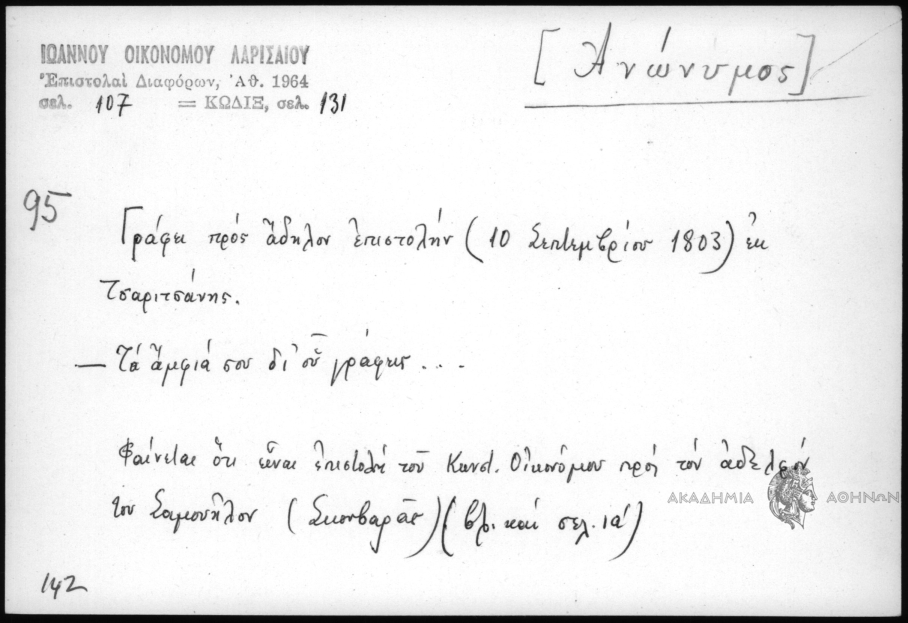 ΙΩΑΝΝΟΥ ΟΙΚΟΝΟΜΟΥ ΛΑΡΙΣΑΙΟΥ
Ἐπιστολαὶ Διαφόρων, Ἀθ. 1964
σελ. 107 = ΚΩΔΙΞ, σελ. 131
[Ἀνώνυμος]
95
Γράφει πρός ἄδηλον ἐπιστολήν (10 Σεπτεμβρίου 1803) ἐκ
Τσαριτσάνης.
— Τά ἄμφιά σου δι' οὗ γράφεις . . .
Φαίνεται ὅτι εἶναι ἐπιστολή τοῦ Κωνστ. Οἰκονόμου πρός τόν ἀδελφόν
του Σαμουῆλον (Σκουβαρᾶς) (βλ. καί σελ. ια')
ΑΚΑΔΗΜΙΑ ΑΘΗΝΩΝ
142